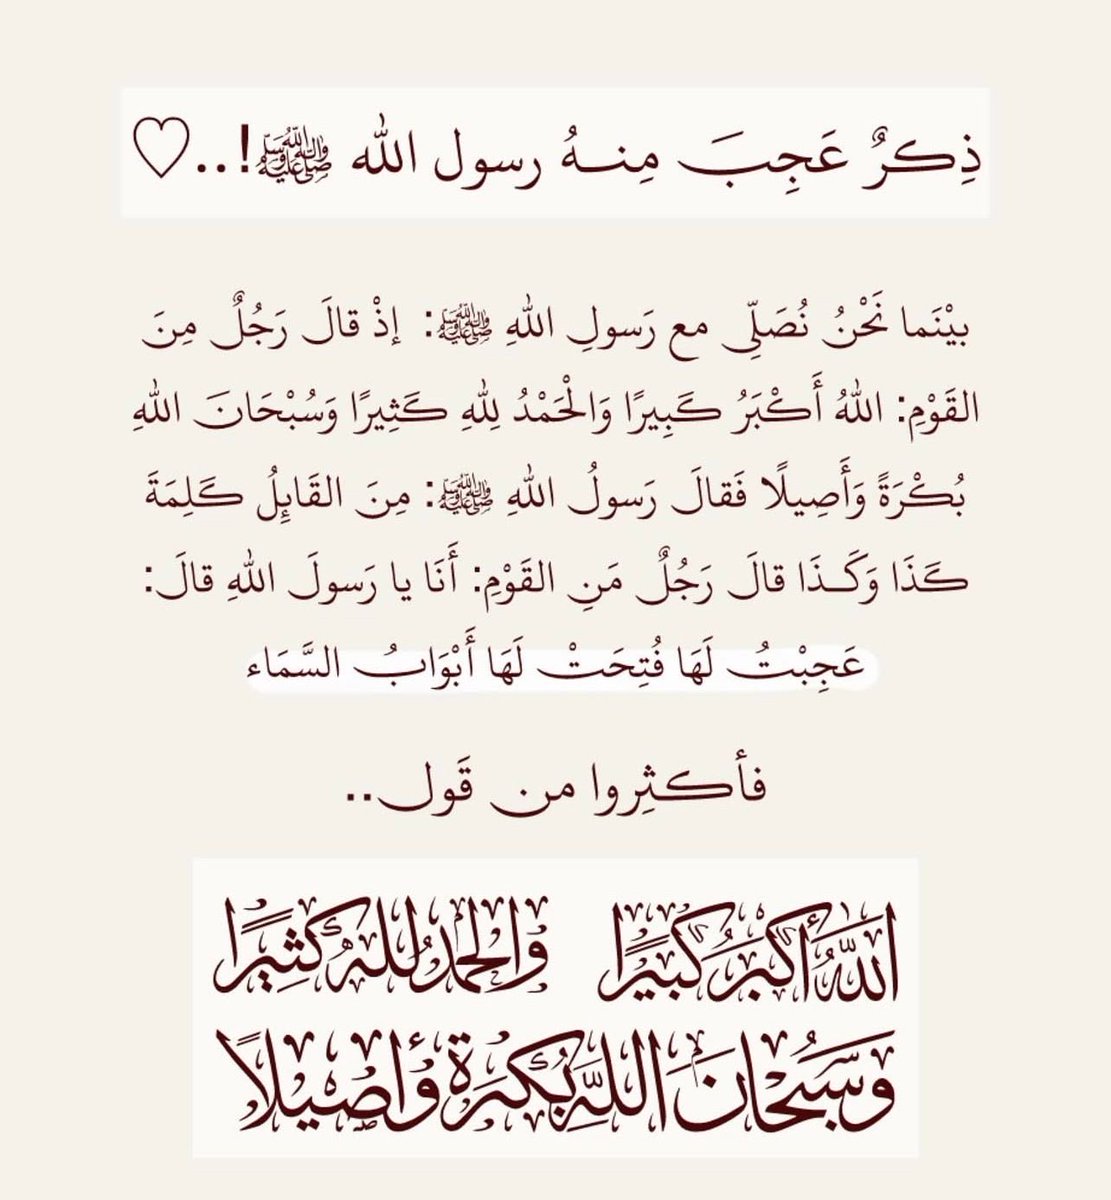 ذِكرٌ عَجِبَ مِنـهُ رسول الله ﷺ!..♡
بيْنَما نَحْنُ نُصَلِّي مع رَسولِ اللهِ ﷺ: إذْ قالَ رَجُلٌ مِنَ
القَوْمِ: اللهُ أَكْبَرُ كَبِيرًا وَالْحَمْدُ لِلهِ كَثِيرًا وَسُبْحَانَ اللهِ
بُكْرَةً وَأَصِيلًا فَقالَ رَسولُ اللهِ ﷺ: مِنَ القَايِلُ كَلِمَةَ
كَذَا وَكَـذَا قالَ رَجُلٌ مَنِ القَوْمِ: أَنَا يا رَسولَ اللهِ قالَ:
عَجِبْتُ لَهَا فُتِحَتْ لَهَا أَبْوَابُ السَّمَاء
فأكثِروا من قَول..
اَللَّهُ أَكْبَرُ كَبِيرًا وَالحَمدُ لِلهِ كَثِيرًا
وَسُبْحَانَ اللَّهِ بُكْرَةً وَأَصِيلًا